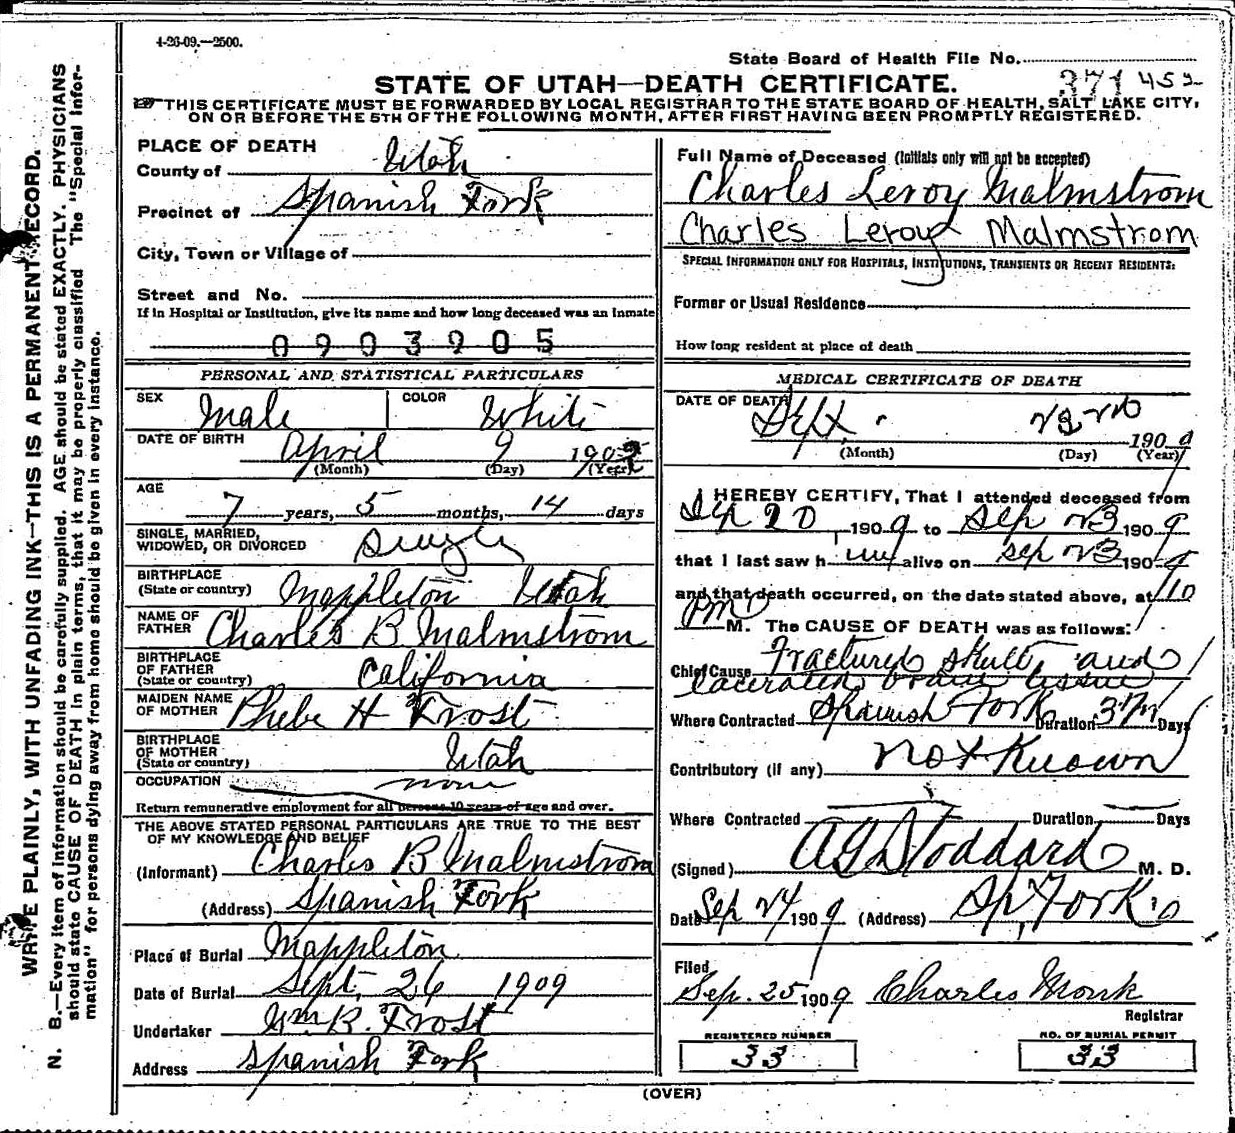 4-26-09.—2500.
State Board of Health File No.
371 452
STATE OF UTAH—DEATH CERTIFICATE.
THIS CERTIFICATE MUST BE FORWARDED BY LOCAL REGISTRAR TO THE STATE BOARD OF HEALTH, SALT LAKE CITY,
ON OR BEFORE THE 5TH OF THE FOLLOWING MONTH, AFTER FIRST HAVING BEEN PROMPTLY REGISTERED.
WRITE PLAINLY, WITH UNFADING INK—THIS IS A PERMANENT RECORD.
N. B.—Every item of information should be carefully supplied. AGE should be stated EXACTLY. PHYSICIANS
should state CAUSE OF DEATH in plain terms, that it may be properly classified. The "Special Infor-
mation" for persons dying away from home should be given in every instance.
PLACE OF DEATH
County of Utah
Precinct of Spanish Fork
City, Town or Village of
Street and No.
If in Hospital or Institution, give its name and how long deceased was an inmate
0903905
PERSONAL AND STATISTICAL PARTICULARS
SEX Male COLOR White
DATE OF BIRTH April 9 190
(Month) (Day) (Year)
AGE
7 years, 5 months, 14 days
SINGLE, MARRIED,
WIDOWED, OR DIVORCED Single
BIRTHPLACE
(State or country) Mappleton Utah
NAME OF
FATHER Charles B Malmstrom
BIRTHPLACE
OF FATHER
(State or country) California
MAIDEN NAME
OF MOTHER Phebe H Frost
BIRTHPLACE
OF MOTHER
(State or country) Utah
OCCUPATION none
Return remunerative employment for all persons 10 years of age and over.
THE ABOVE STATED PERSONAL PARTICULARS ARE TRUE TO THE BEST
OF MY KNOWLEDGE AND BELIEF
(Informant) Charles B Malmstrom
(Address) Spanish Fork
Place of Burial Mappleton
Date of Burial Sept. 26 1909
Undertaker Wm R. Frost
Address Spanish Fork
Full Name of Deceased (Initials only will not be accepted)
Charles Leroy Malmstrom
Charles Leroy Malmstrom
SPECIAL INFORMATION ONLY FOR HOSPITALS, INSTITUTIONS, TRANSIENTS OR RECENT RESIDENTS:
Former or Usual Residence
How long resident at place of death
MEDICAL CERTIFICATE OF DEATH
DATE OF DEATH Sept. 23rd 1909
(Month) (Day) (Year)
I HEREBY CERTIFY, That I attended deceased from
Sep 20 1909 to Sep 23 1909
that I last saw him alive on Sep 23 1909
and that death occurred, on the date stated above, at 10
PM M. The CAUSE OF DEATH was as follows:
Chief Cause Fractured skull, and
lacerated brain tissue
Where Contracted Spanish Fork Duration 3 Days
Contributory (if any) Not Known
Where Contracted Duration Days
(Signed) A G Stoddard M. D.
Date Sep 24 1909 (Address) Sp, Fork
Filed
Sep. 25 1909 Charles Monk
Registrar
REGISTERED NUMBER
33
NO. OF BURIAL PERMIT
33
(OVER)